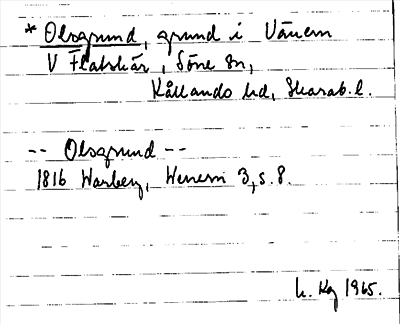 * Olsgrund, grund i Vänern
V Flatskär, Söne sn,
Kållands hd, Skarab. l.
-- Olsgrund --
1816 Warberg, Wenern 3, s. 8.
1965.